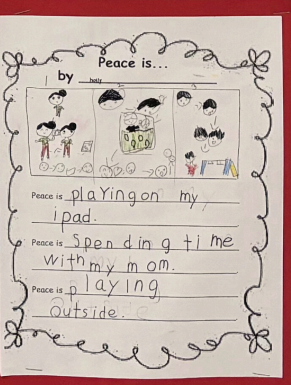 Peace is...
by holly
Peace is playing on my
ipad.
Peace is Spending time
with my mom.
Peace is playing
outside.